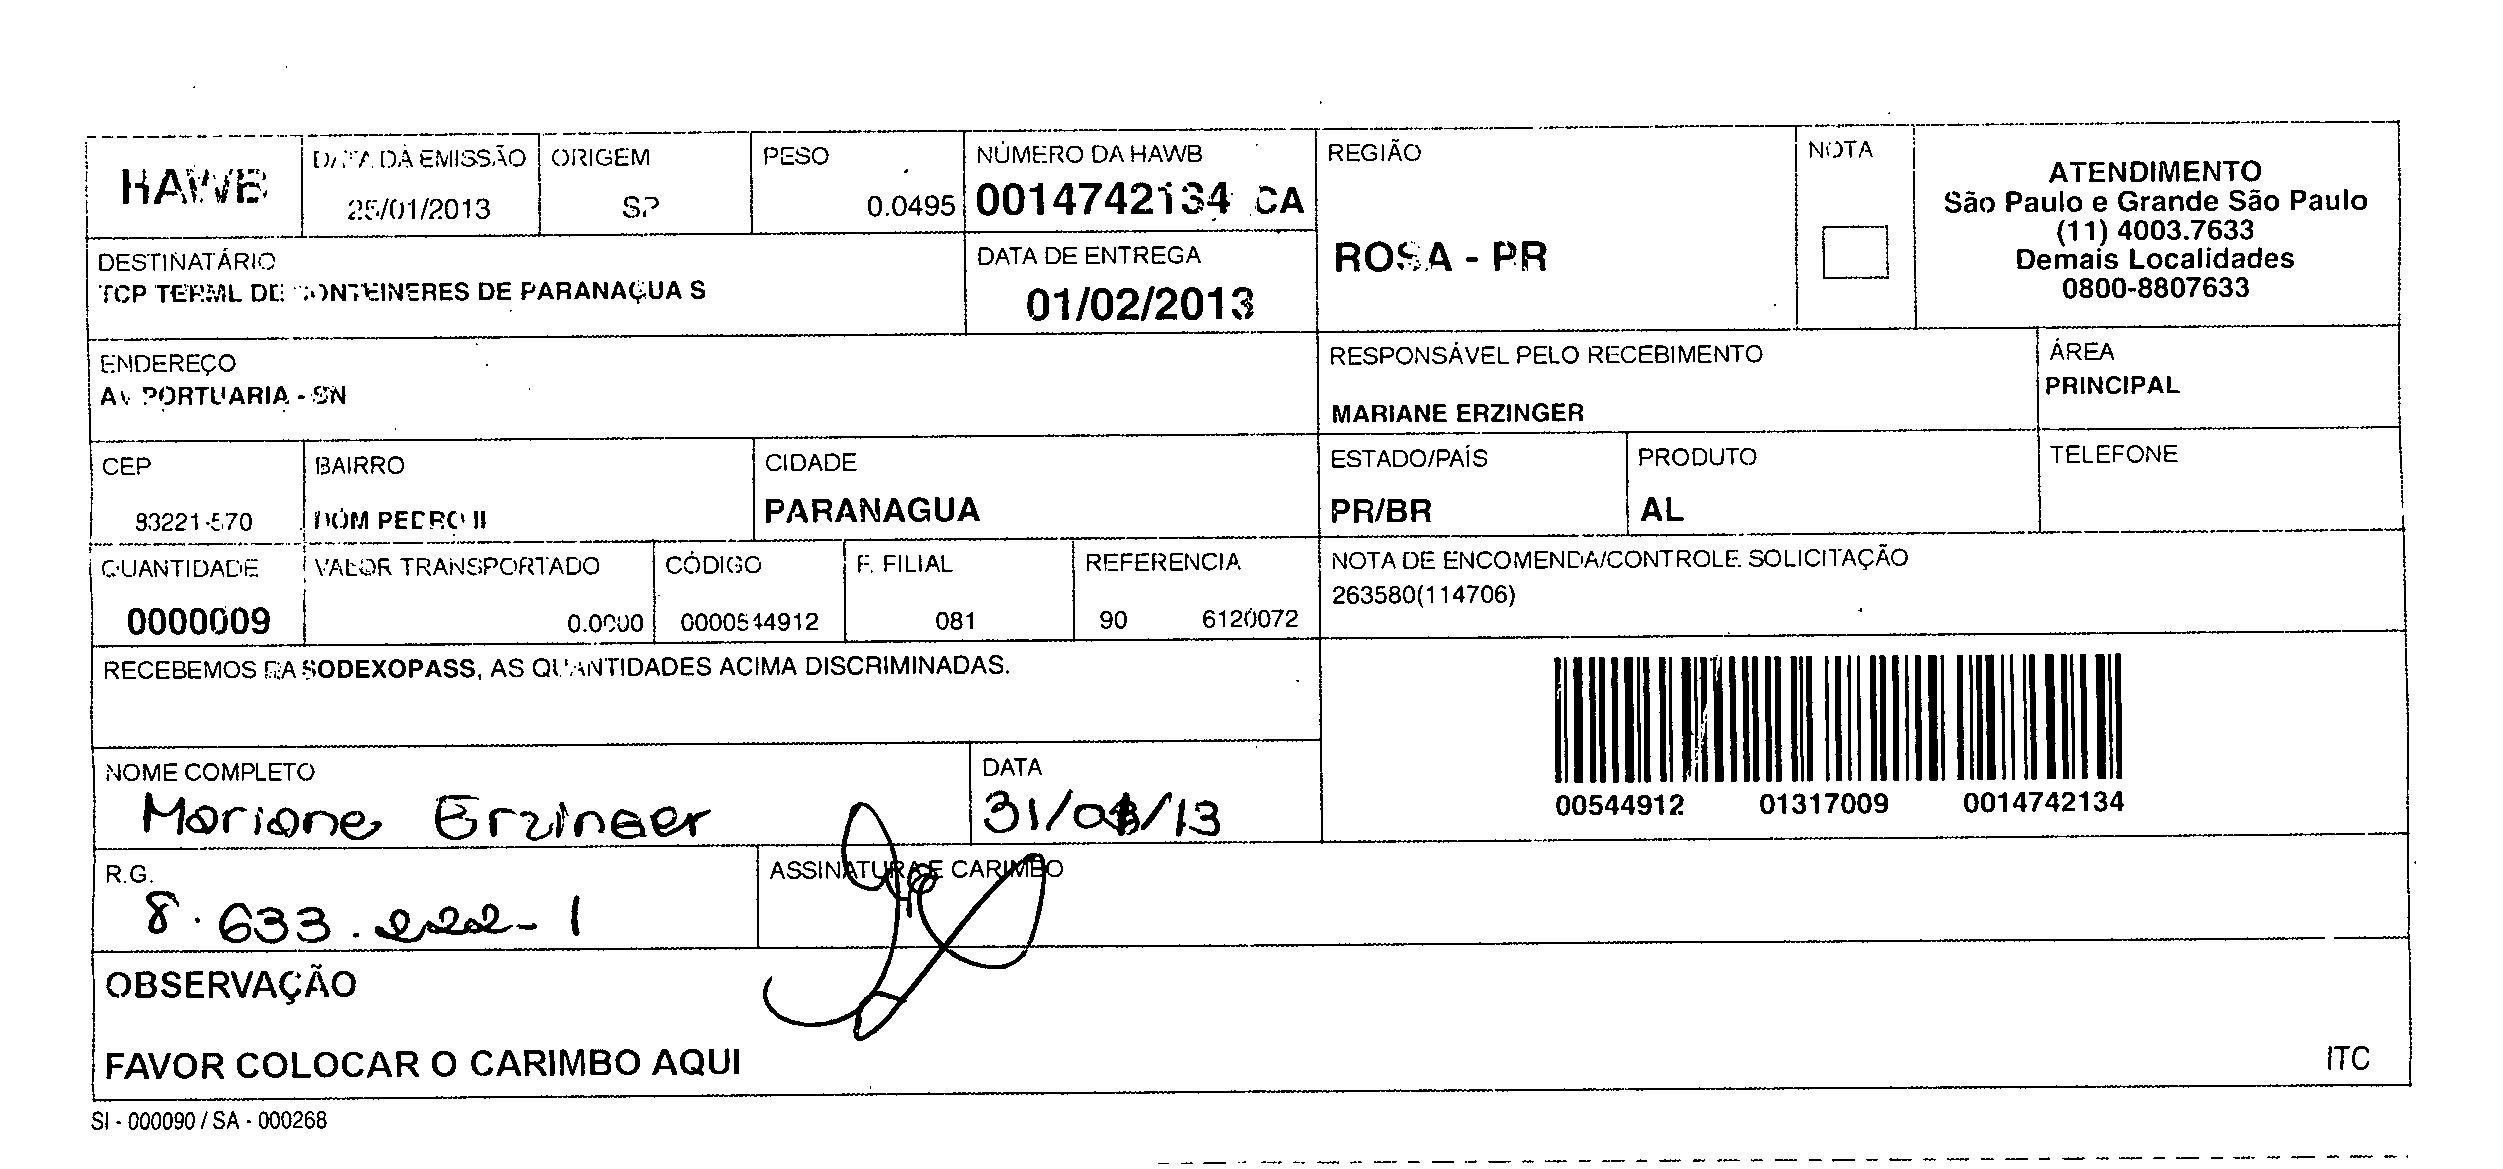 HAWB
DATA DA EMISSÃO
25/01/2013
ORIGEM
SP
PESO
0.0495
NÚMERO DA HAWB
0014742134 CA
REGIÃO
ROSA - PR
NOTA
ATENDIMENTO
São Paulo e Grande São Paulo
(11) 4003.7633
Demais Localidades
0800-8807633
DESTINATÁRIO
TCP TERML DE CONTEINERES DE PARANAGUA S
DATA DE ENTREGA
01/02/2013
ENDEREÇO
AV PORTUARIA - SN
RESPONSÁVEL PELO RECEBIMENTO
MARIANE ERZINGER
ÁREA
PRINCIPAL
CEP
83221-570
BAIRRO
DOM PEDRO II
CIDADE
PARANAGUA
ESTADO/PAÍS
PR/BR
PRODUTO
AL
TELEFONE
QUANTIDADE
0000009
VALOR TRANSPORTADO
0.0000
CÓDIGO
0000544912
F. FILIAL
081
REFERENCIA
90 6120072
NOTA DE ENCOMENDA/CONTROLE SOLICITAÇÃO
263580(114706)
RECEBEMOS DA SODEXOPASS, AS QUANTIDADES ACIMA DISCRIMINADAS.
00544912 01317009 0014742134
NOME COMPLETO
Mariane Erzinger
DATA
31/01/13
R.G.
8.633.222-1
ASSINATURA E CARIMBO
OBSERVAÇÃO
FAVOR COLOCAR O CARIMBO AQUI
ITC
SI - 000090 / SA - 000268